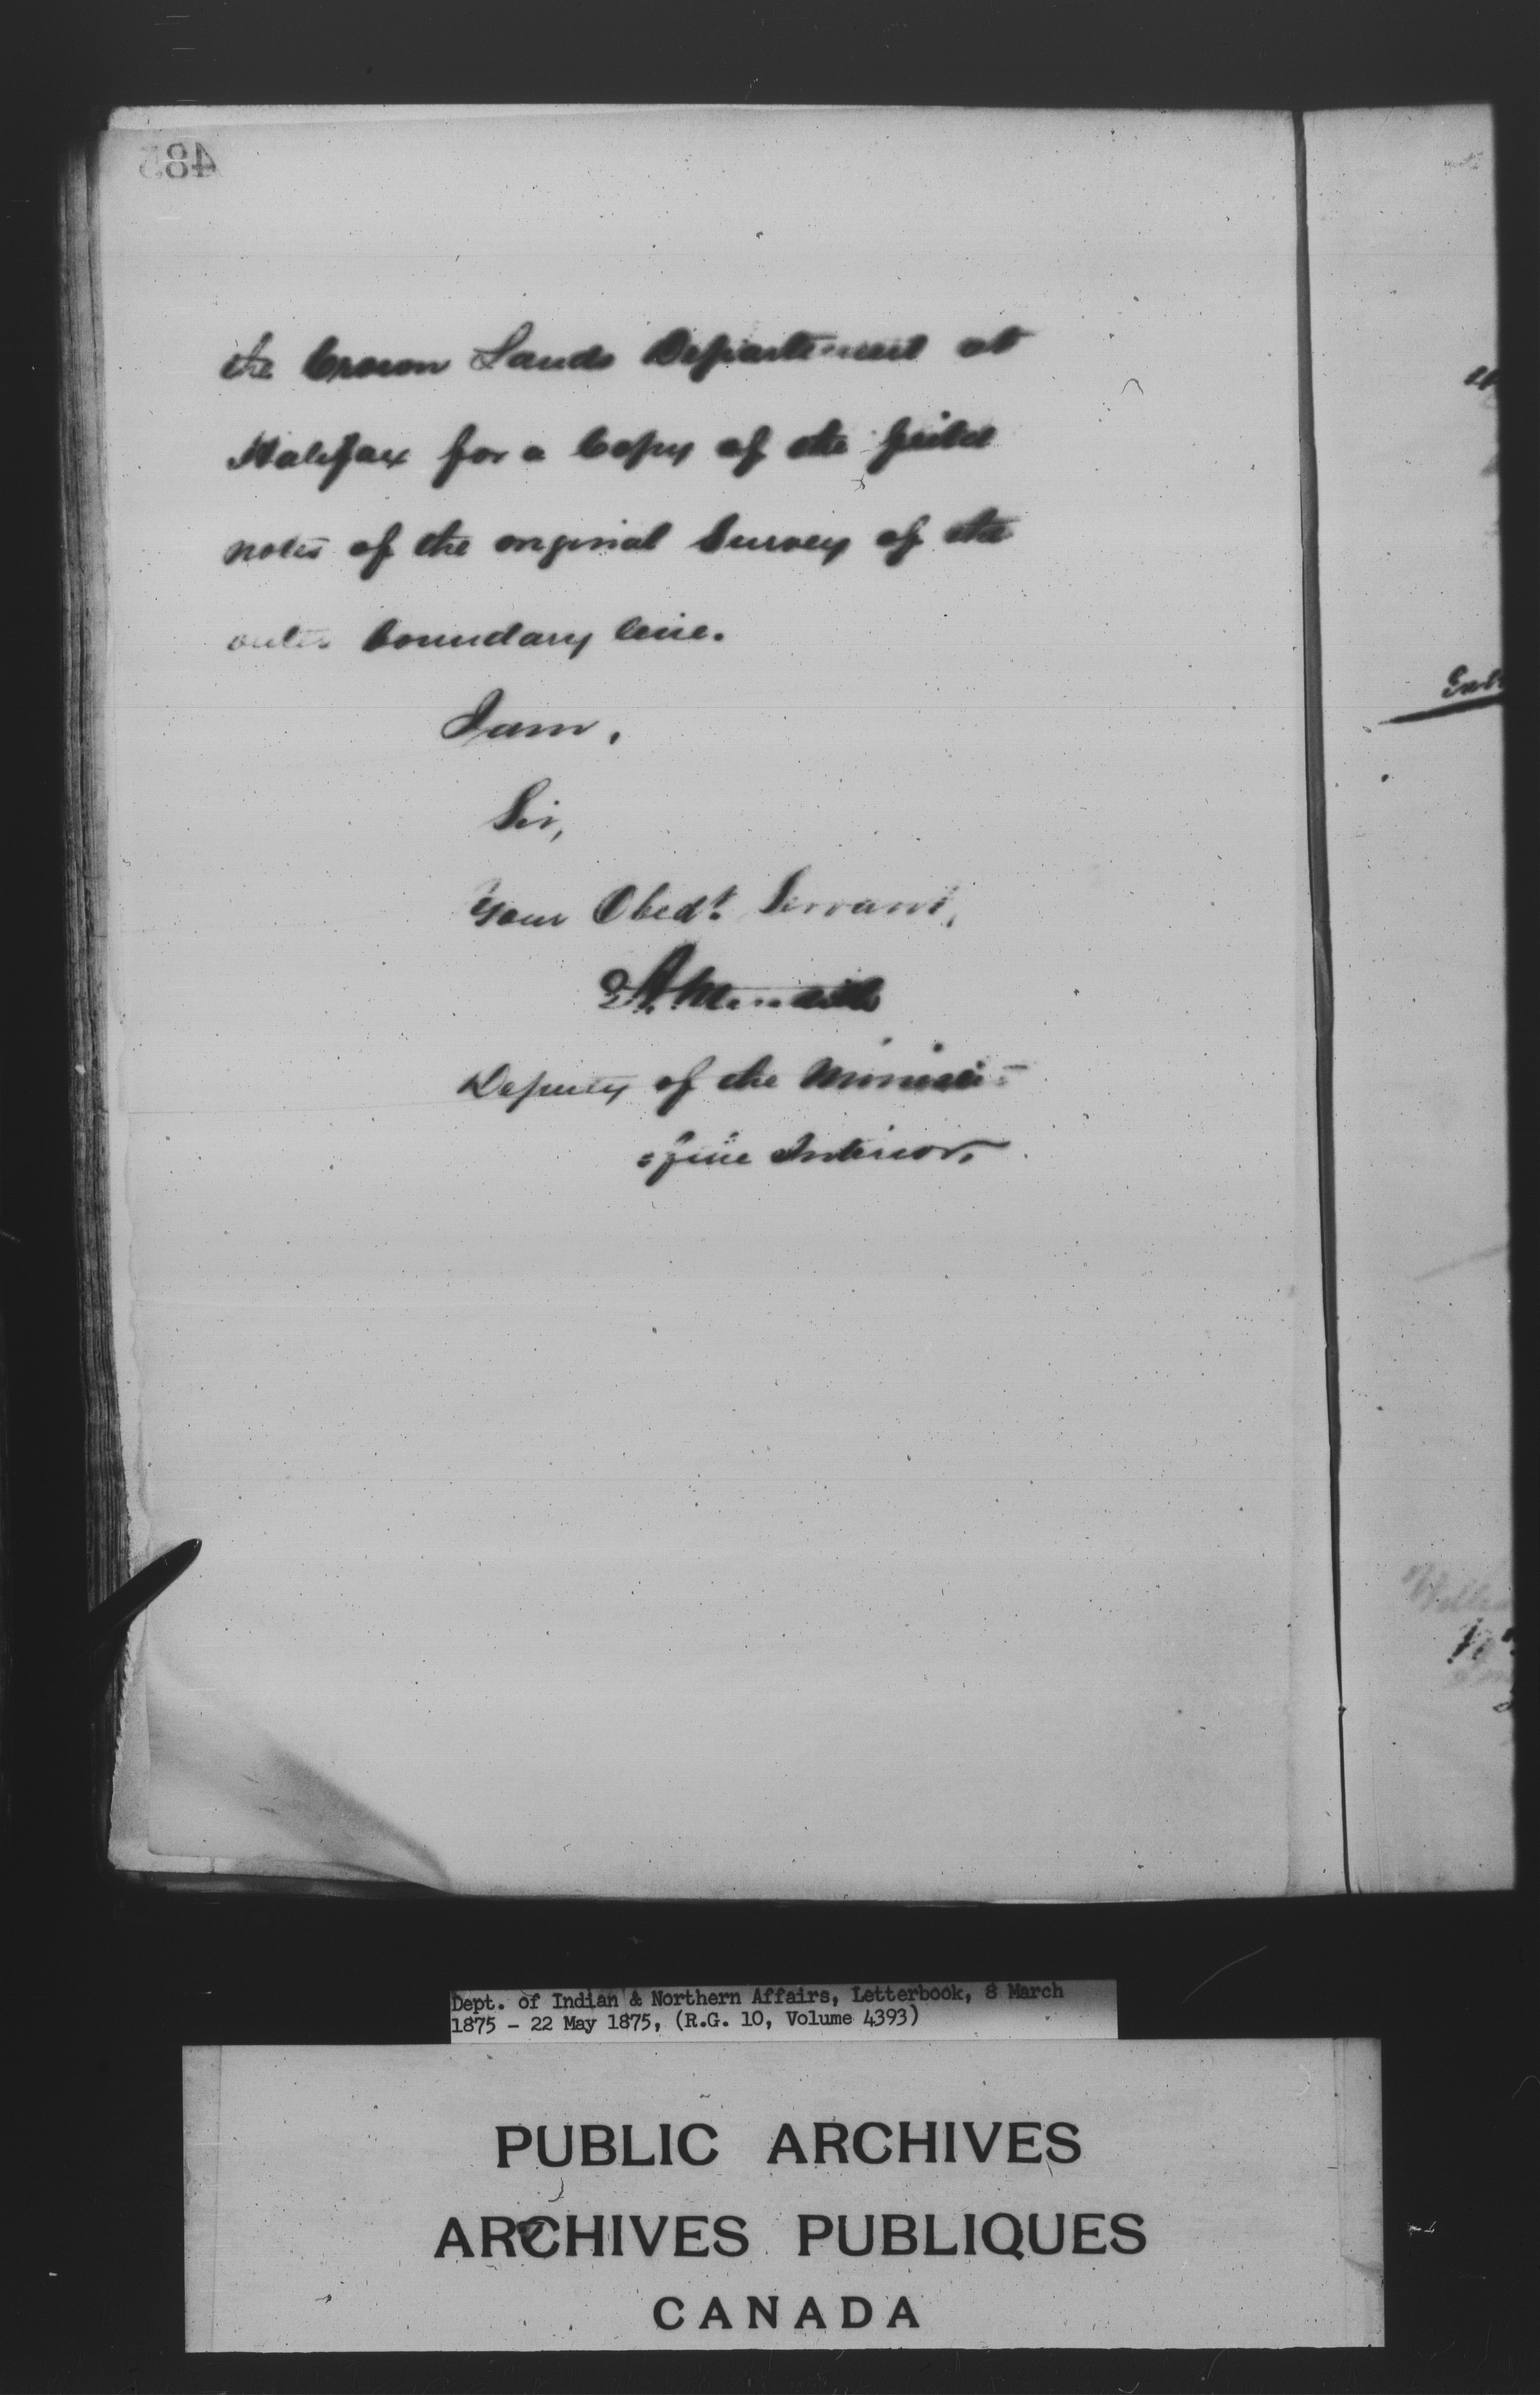 485
the Crown Lands Department at
Halifax for a Copy of the feild
notes of the original Survey of the
outer boundary line.
I am,
Sir,
Your Obedt. Servant,
E A Meredith
Deputy of the Minister
of the Interior.
Dept. of Indian & Northern Affairs, Letterbook, 8 March
1875 - 22 May 1875, (R.G. 10, Volume 4393)
PUBLIC ARCHIVES
ARCHIVES PUBLIQUES
CANADA